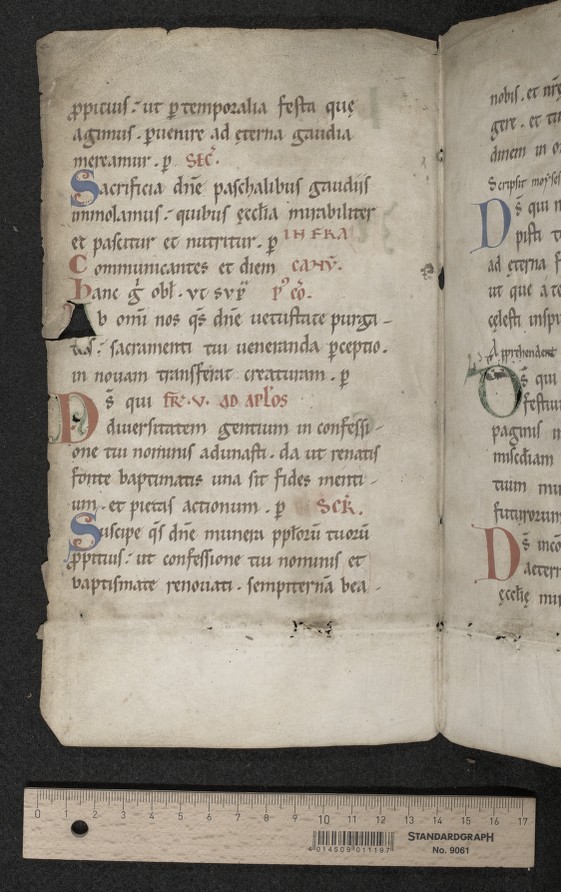 ꝓpitius. ut ꝑ temporalia festa quę
agimus. ꝑuenire ad ęterna gaudia
mereamur. ꝑ SEC̄.
Sacrificia dn̄e paschalibus gaudiis
immolamus. quibus ęcclia mirabiliter
et pascitur et nutritur. ꝑ INFRA
Communicantes et diem CAN̄.
Hanc g obl. ut sup
Ab omi nos q̄s dn̄e uetustate purga-
tis. sacramenti tui ueneranda ꝑceptio.
in nouam transferat creaturam. ꝑ
Ds̄ qui FR. V. AD APLOS
diuersitatem gentium in confessi-
one tui nominis adunasti. da ut renatis
fonte baptimatis una sit fides menti-
um. et pietas actionum. ꝑ SCR.
Suscipe q̄s dn̄e munera pplorū tuorū
ꝓpitius. ut confessione tui nominis et
baptismate renouati. sempiternā bea-
nobis. et nrē
gere. et
dinem in
Scripsit moyses
Ds̄ qui
pisti
ad ęterna
ut que a te
cęlesti inspi
Apprehendent
Ds̄ qui
festiui
paginis
miscdiam
tium mu
futurorum
Ds̄ inco
aetern
ęcclię mi
0 1 2 3 4 5 6 7 8 9 10 11 12 13 14 15 16 17
4 014509 011197
STANDARDGRAPH
No. 9061